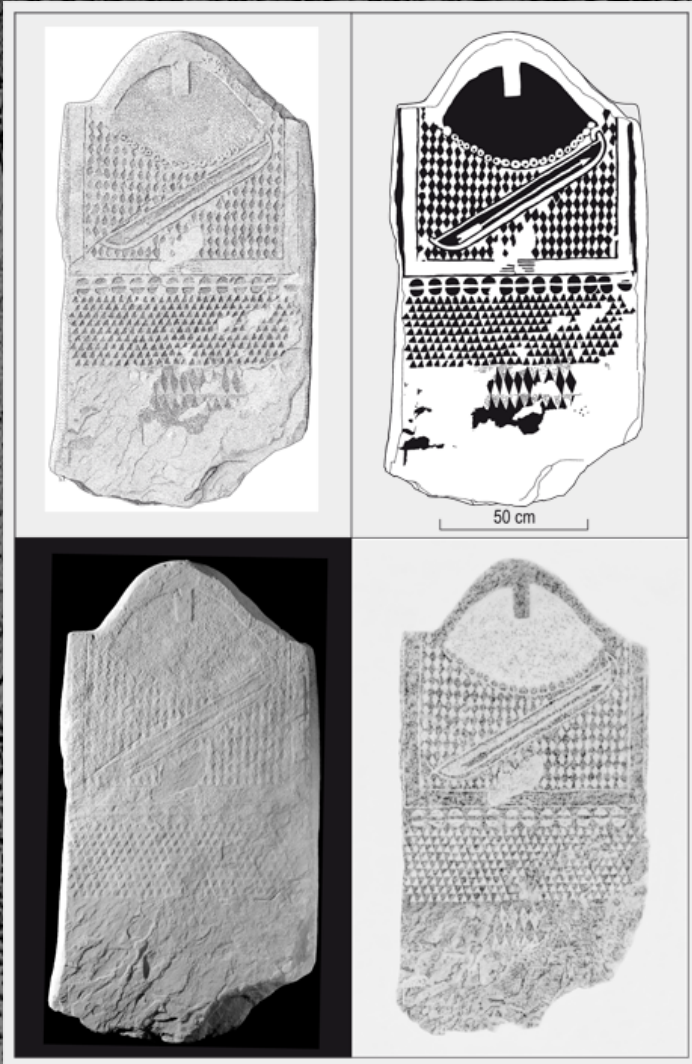 50 cm